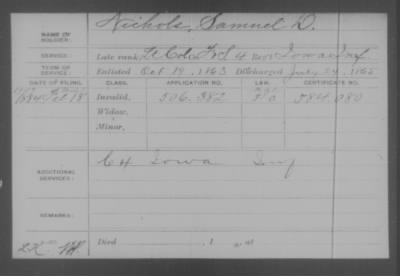 NAME OF SOLDIER: Nichols, Samuel D.
SERVICE: Late rank, Lt Col F&S 4 Regt Iowa Inf
TERM OF SERVICE: Enlisted Oct 19, 1863 Discharged July 24, 1865
DATE OF FILING. CLASS. APPLICATION NO. LAW. CERTIFICATE NO.
1884 Feb 18 Invalid, 506.382 584.080
Widow,
Minor,
ADDITIONAL SERVICES: C H Iowa Inf
REMARKS:
Died , 1 , at